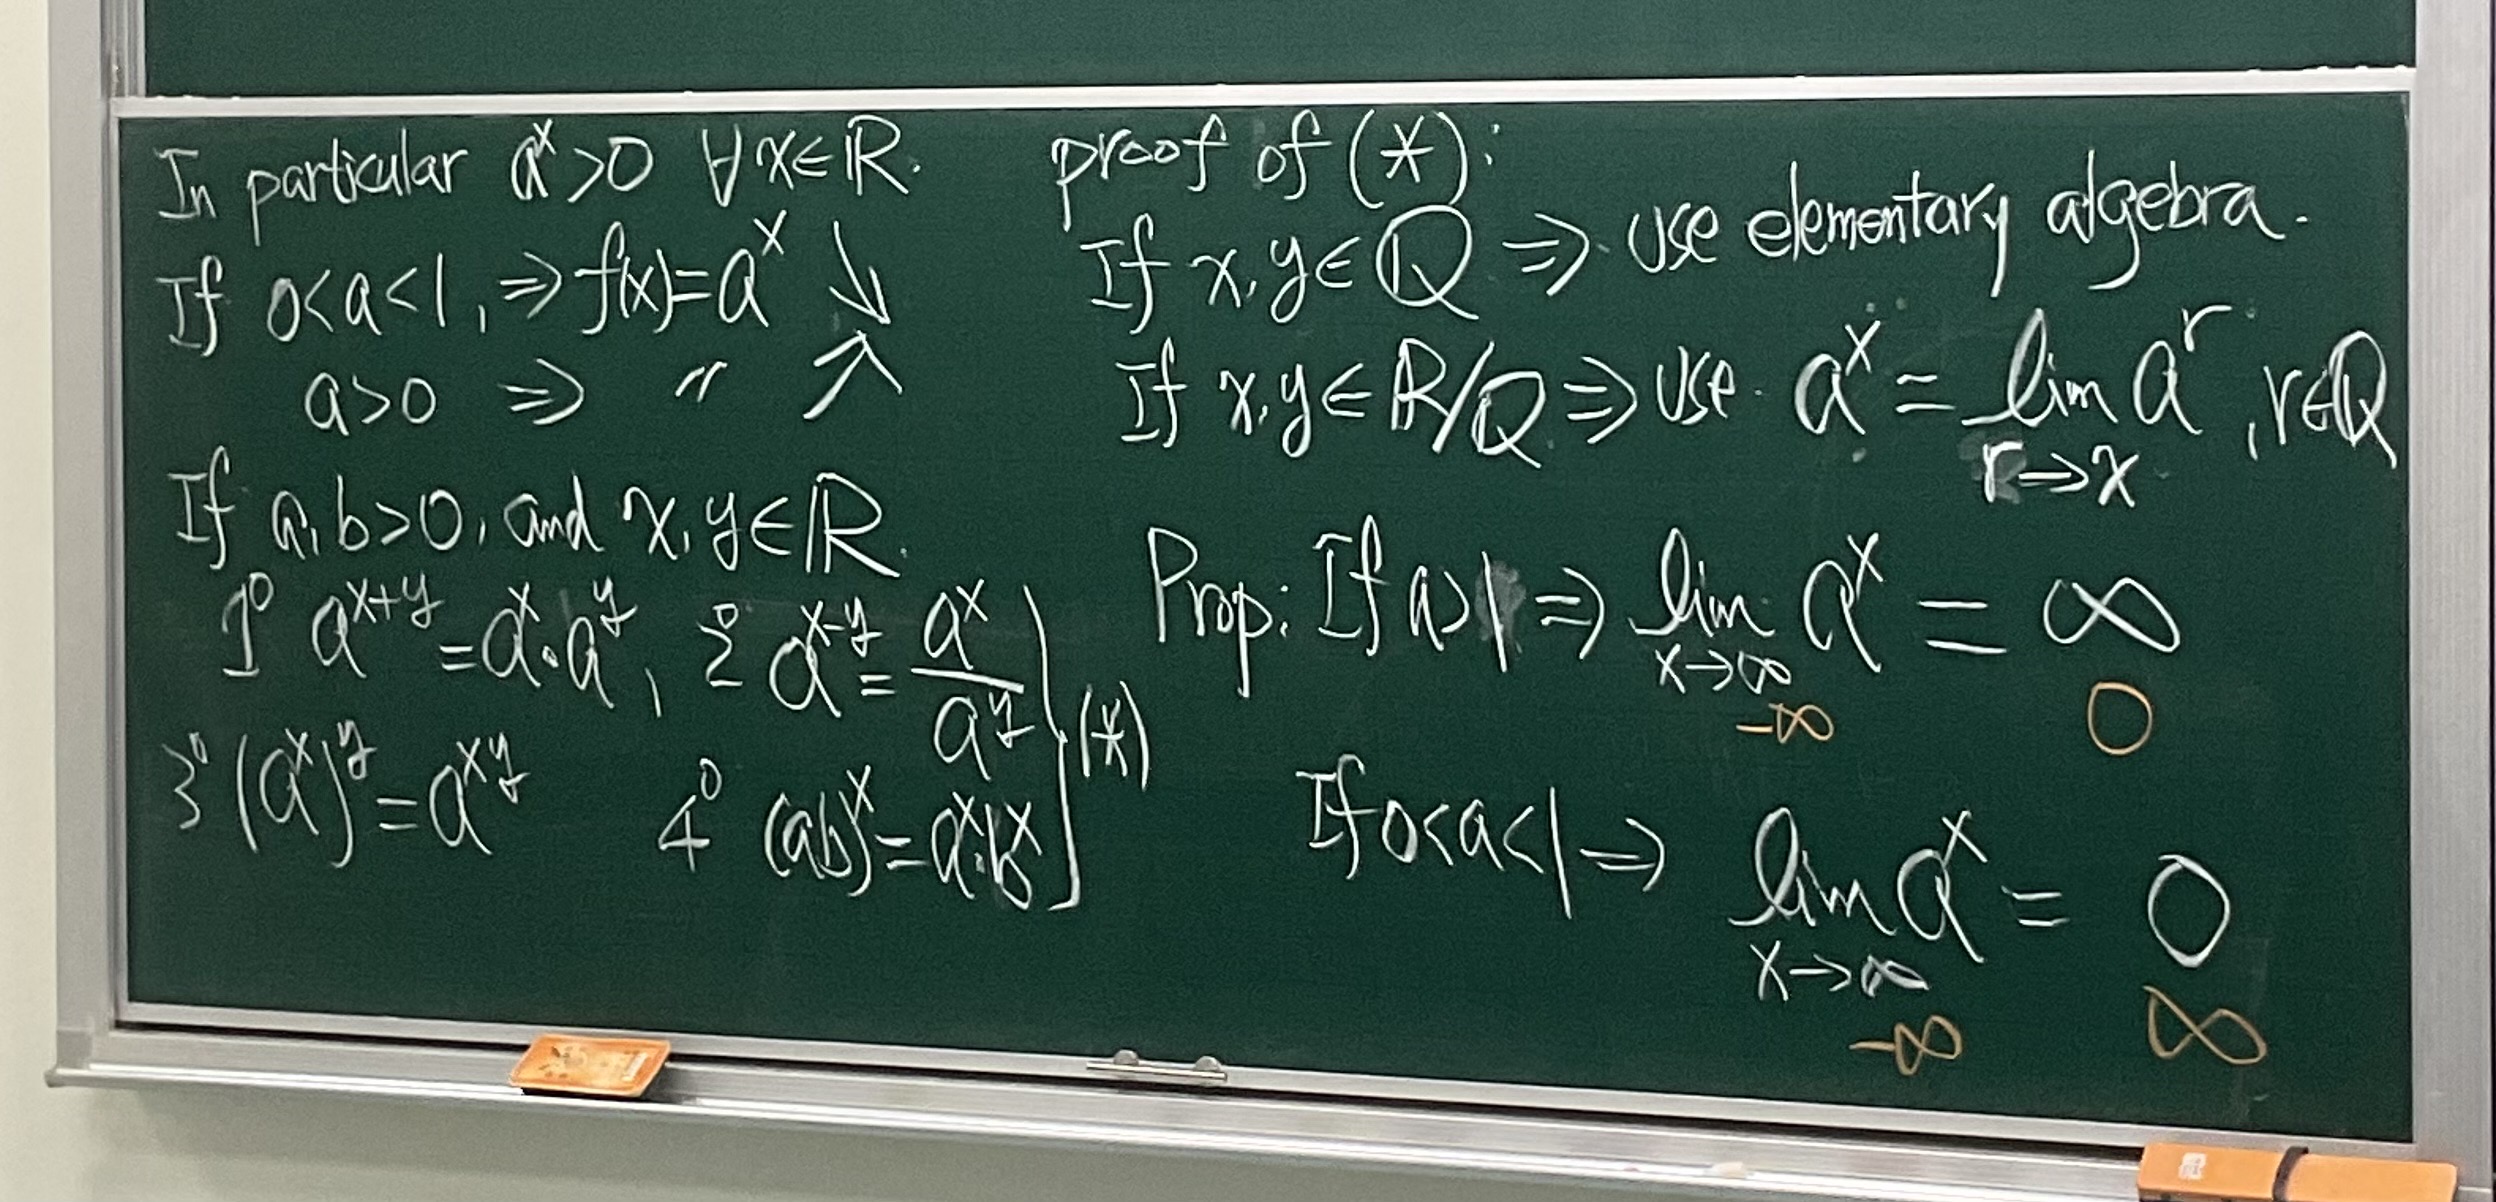 In particular aˣ>0 ∀x∈ℝ.
If 0<a<1, ⇒ f(x)=aˣ ↘
a>0 ⇒ 〃 ↗
If a, b>0, and x, y∈ℝ.
1° a^{x+y} = aˣ·a^y, 2° a^{x-y} = aˣ/a^y
3° (aˣ)^y = a^{xy} 4° (ab)ˣ = aˣ·bˣ ] (*)
proof of (*):
If x, y∈ℚ ⇒ use elementary algebra.
If x, y∈ℝ/ℚ ⇒ use aˣ = lim_{r→x} a^r, r∈ℚ
Prop: If a>1 ⇒ lim_{x→∞} aˣ = ∞
-∞ 0
If 0<a<1 ⇒ lim_{x→∞} aˣ = 0
-∞ ∞